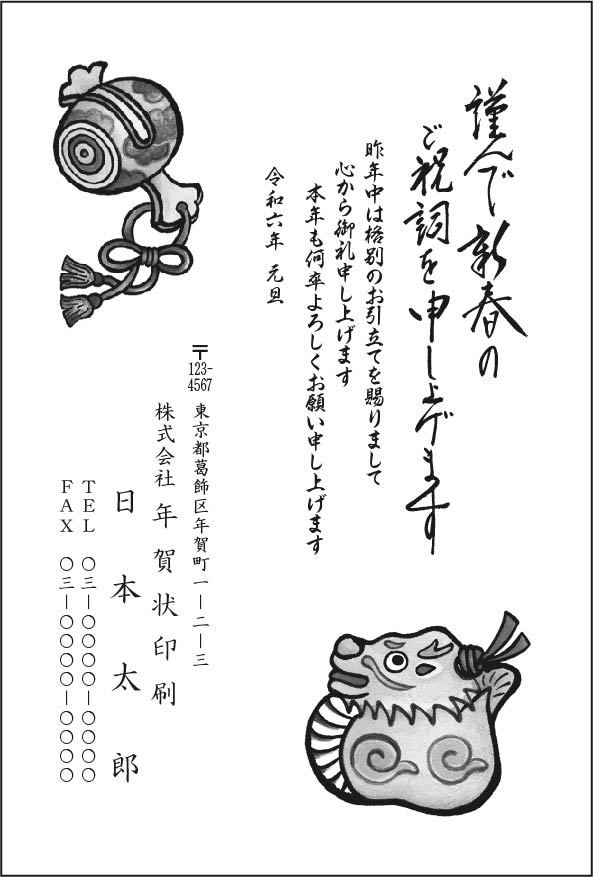 謹んで新春の
ご祝詞を申し上げます
昨年中は格別のお引立てを賜りまして
心から御礼申し上げます
本年も何卒よろしくお願い申し上げます
令和六年 元旦
〒
123-
4567
東京都葛飾区年賀町一―二―三
株式会社 年賀状印刷
日本太郎
TEL 〇三―〇〇〇〇―〇〇〇〇
FAX 〇三―〇〇〇〇―〇〇〇〇